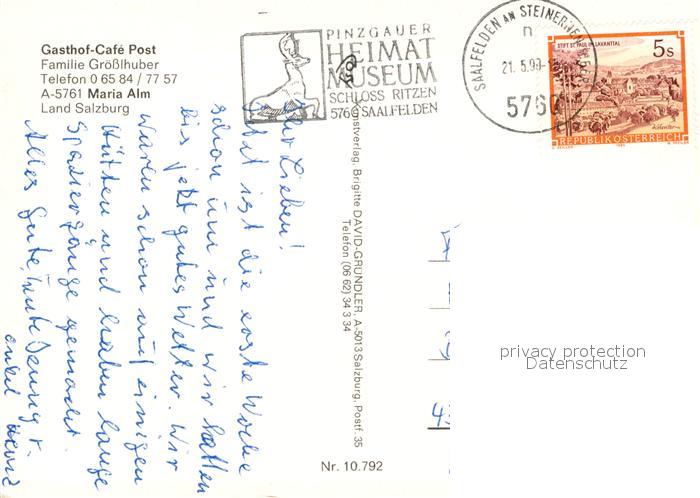 Gasthof-Café Post
Familie Größlhuber
Telefon 0 65 84 / 77 57
A-5761 Maria Alm
Land Salzburg
PINZGAUER
HEIMAT
MUSEUM
SCHLOSS RITZEN
5760 SAALFELDEN
SAALFELDEN AM STEINERNEN MEER
n
21.5.90-
5760
STIFT ST. PAUL IM LAVANTTAL
5s
REPUBLIK ÖSTERREICH
Ihr Lieben!
Jetzt ist die erste Woche
schon um und wir hatten
bis jetzt gutes Wetter. Wir
waren schon auf einigen
Hütten und haben lange
Spaziergänge gemacht.
Alles Gute, Tante
Onkel Heinz
Kunstverlag, Brigitte DAVID-GRÜNDLER, A-5013 Salzburg, Postf. 35
Telefon (06 62) 34 3 34
Nr. 10.792
privacy protection
Datenschutz